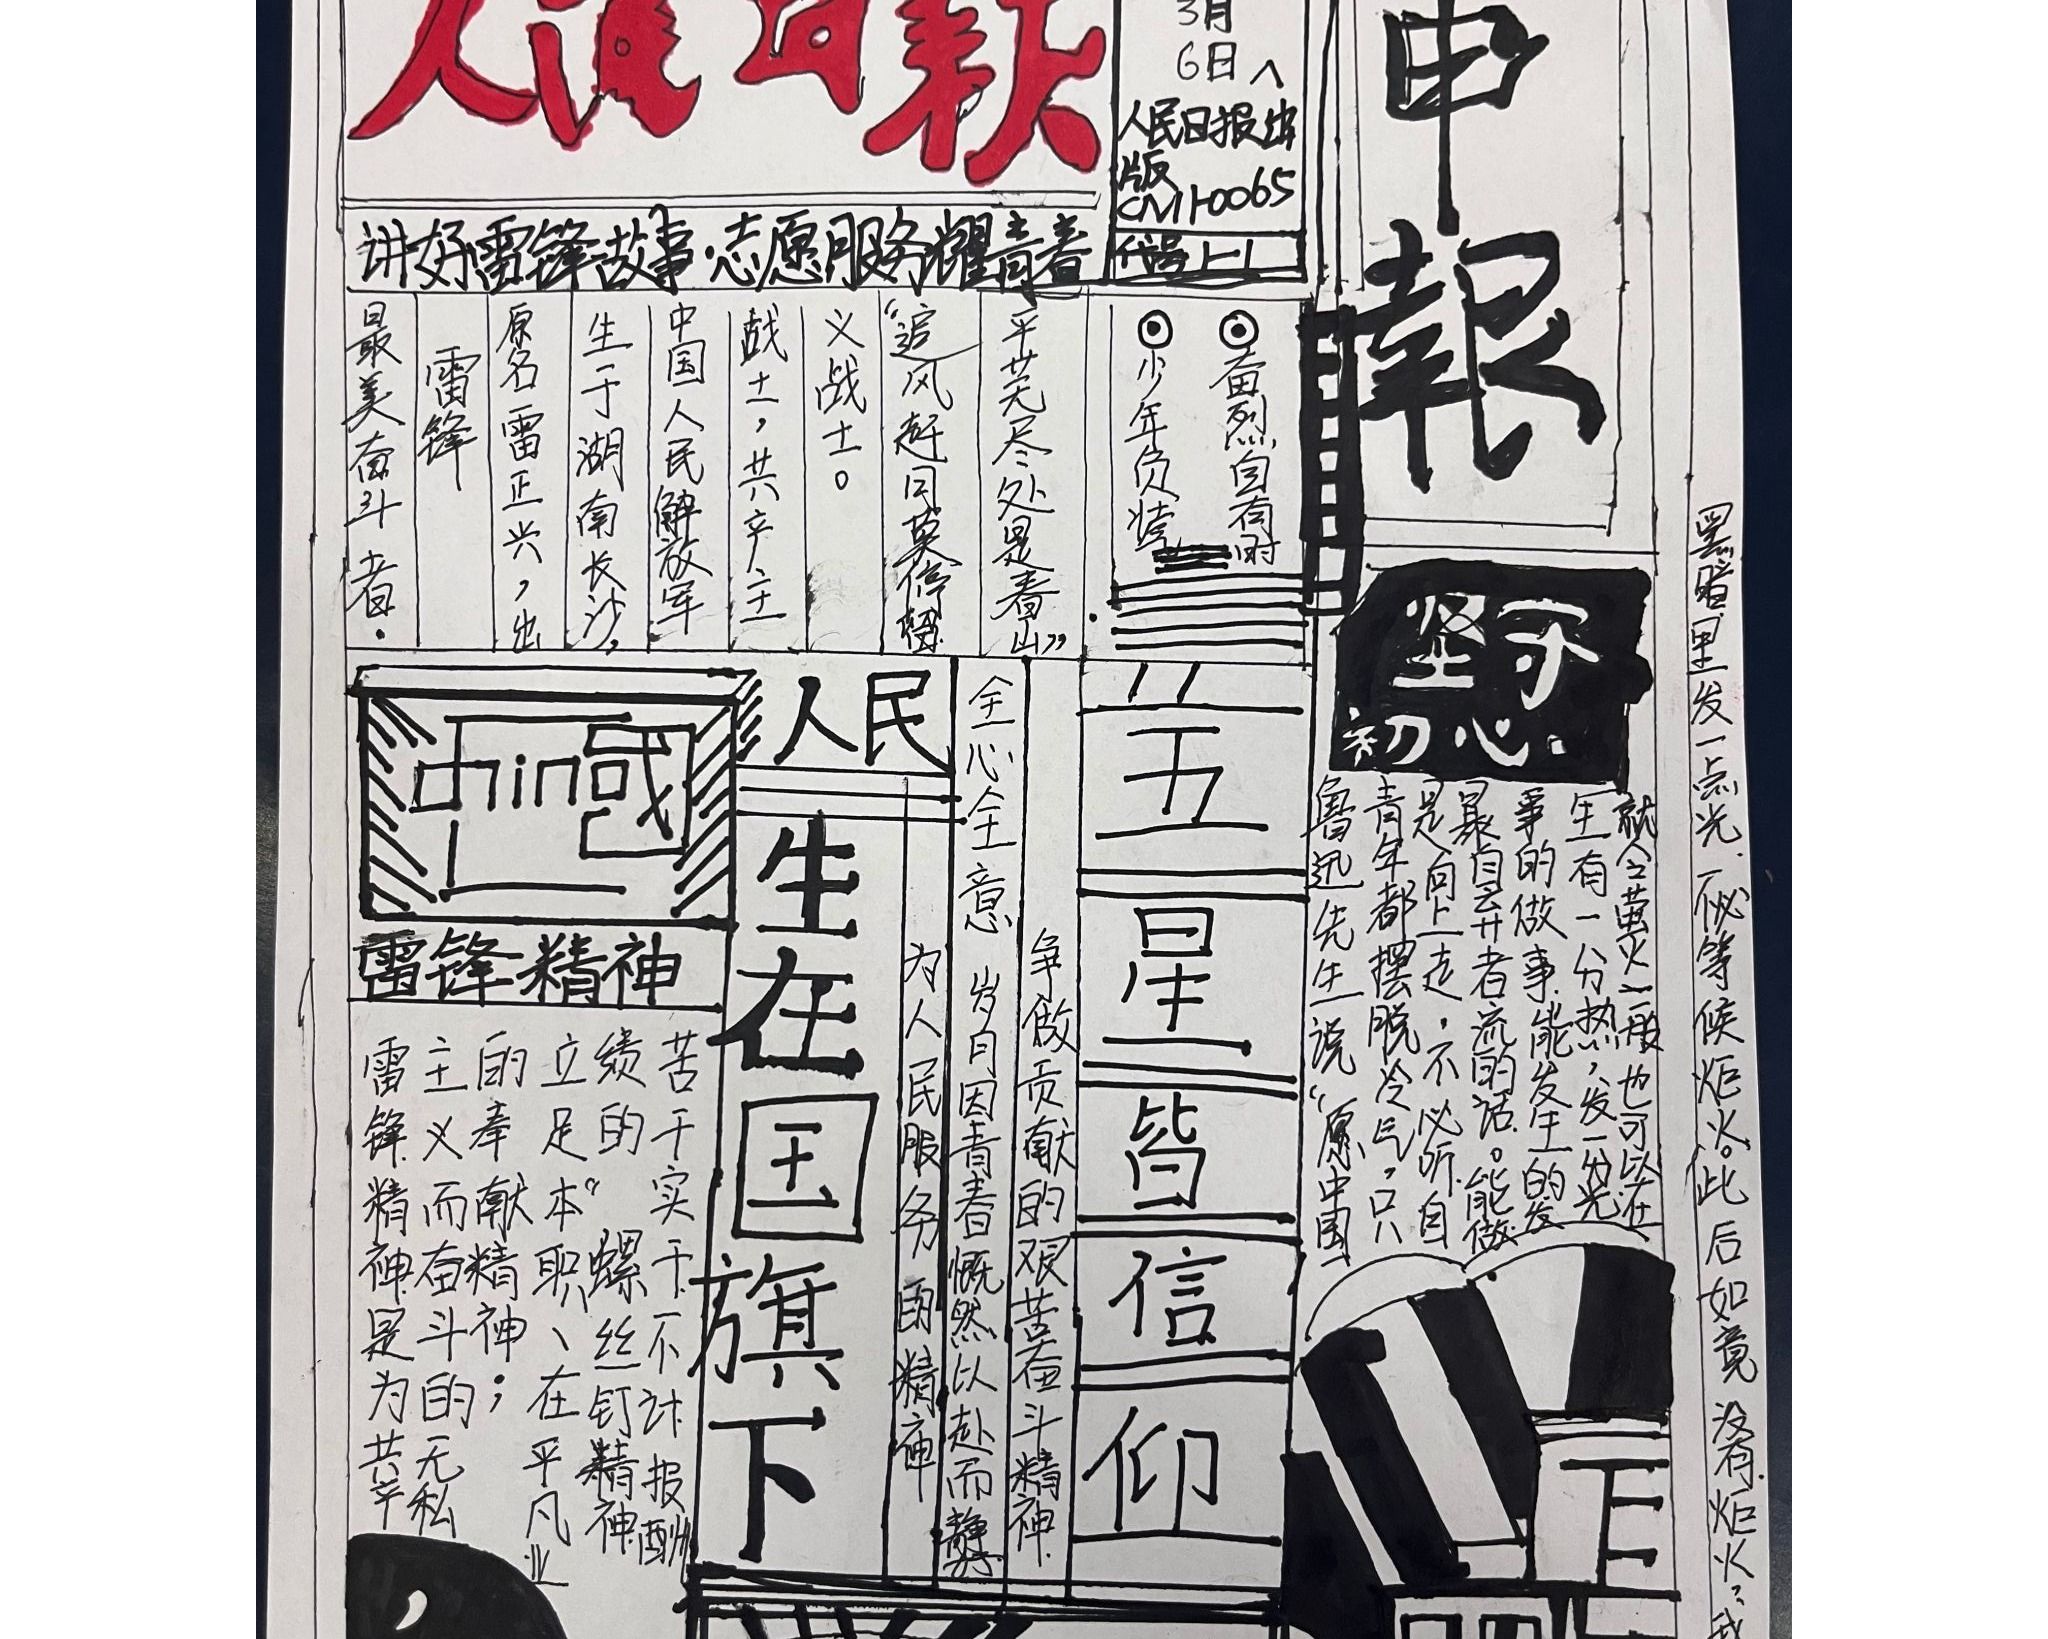 人民日报
3月
6日
人民日报出
版
CN11-0065
代号1-1
申報
讲好雷锋故事·志愿服务耀青春
最美奋斗者·
雷锋
原名雷正兴，出
生于湖南长沙，
中国人民解放军
战士，共产主
义战士。
“追风赶月莫停留
平芜尽处是春山”
少年负壮
奋烈自有时
坚守
初心
人民
中国
china
雷锋精神
雷锋精神是为共产
主义而奋斗的无私
的奉献精神；
立足本职、在平凡业
绩的“螺丝钉精神
苦干实干不计报酬
生在国旗下
为人民服务的精神
全心全意
岁月因青春慨然以赴而静好
争做贡献的艰苦奋斗精神
五星皆信仰
鲁迅先生说“愿中国
青年都摆脱冷气，只
是向上走，不必听自
暴自弃者流的话。能做
事的做事，能发生的发
生有一分热，发一分光
就令萤火一般也可以在
黑暗里发一点光，不必等候炬火。此后如竟没有炬火：我